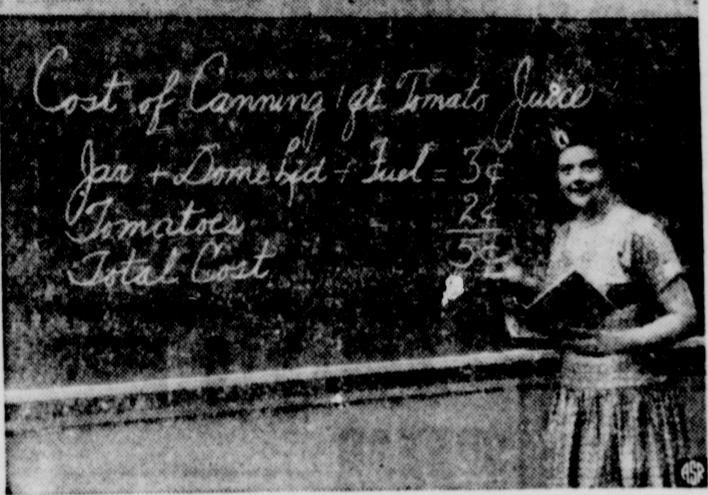 Cost of Canning 1 qt Tomato Juice
Jar + Dome Lid + Fuel = 3¢
Tomatoes 2¢
Total Cost 5¢
ASP